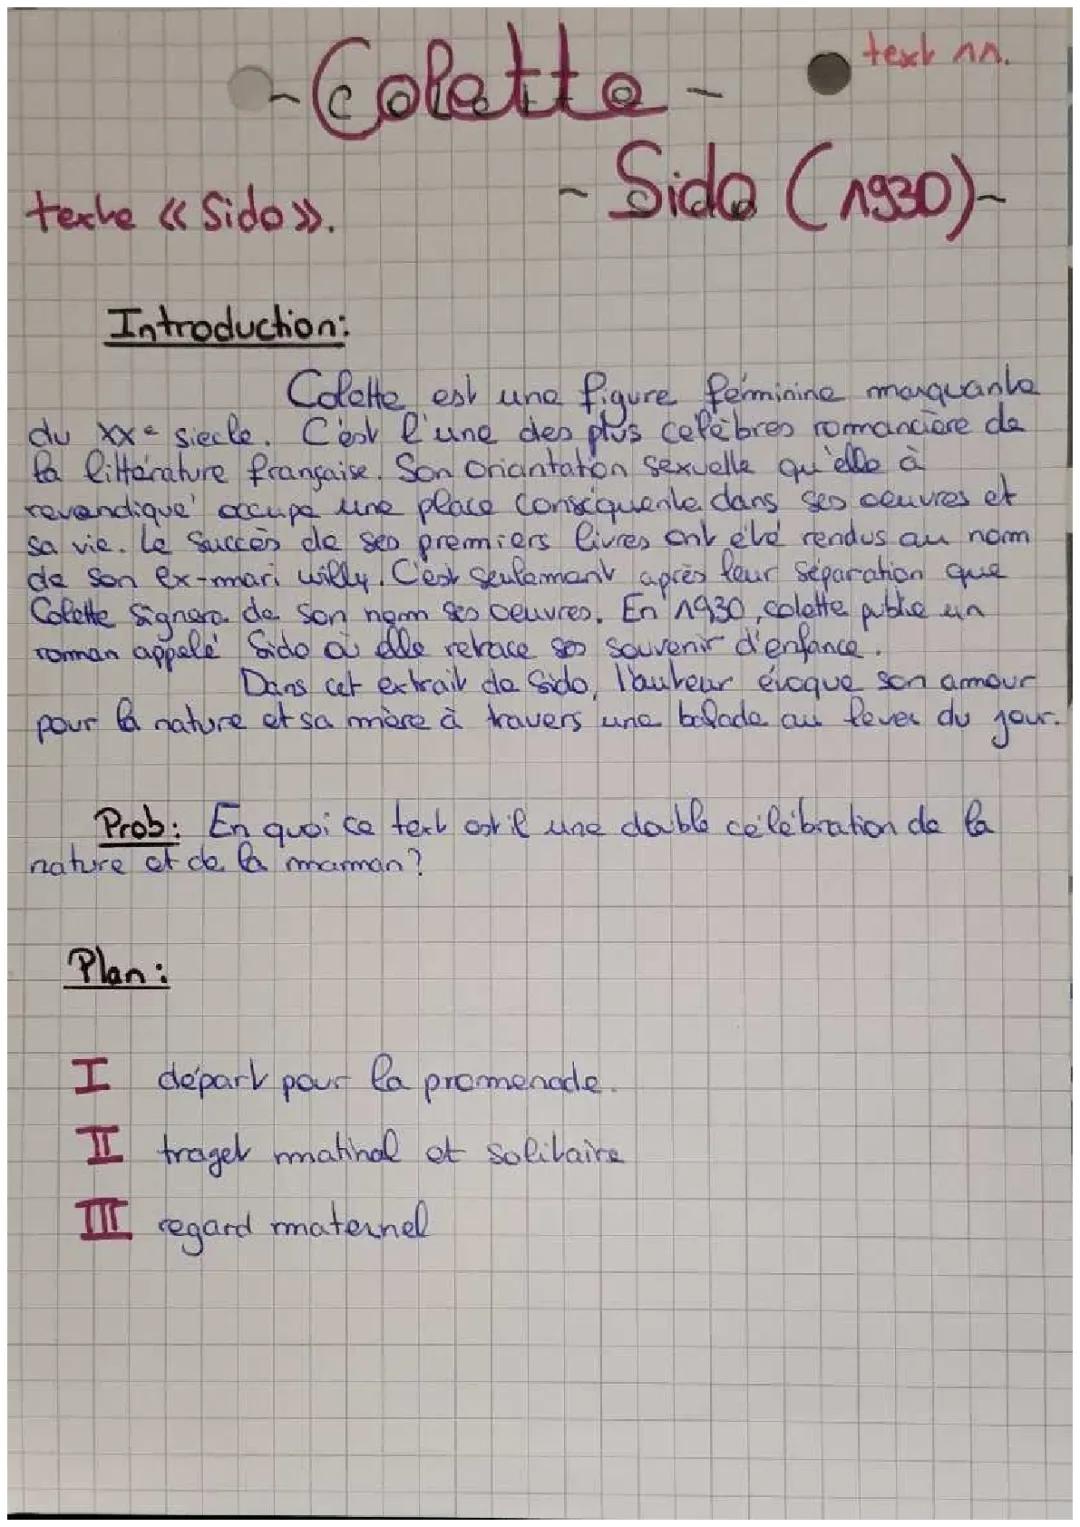 text 11.
- Colette -
- Sido (1930) -
texte « Sido ».
Introduction:
Colette est une figure féminine marquante
du XXe siecle. C'est l'une des plus celèbres romancière de
la littérature française. Son oriantation sexuelle qu'elle à
revendiqué occupe une place conséquente dans ses oeuvres et
sa vie. Le succès de ses premiers livres ont été rendus au nom
de son ex-mari willy. C'est seulement après leur séparation que
Colette signera de son nom ses oeuvres. En 1930, colette publie un
roman appelé Sido où elle retrace ses souvenir d'enfance.
Dans cet extrait de Sido, l'auteur évoque son amour
pour la nature et sa mère à travers une balade au lever du jour.
Prob: En quoi ce text est il une double célébration de la
nature et de la maman?
Plan:
I départ pour la promenade.
II traget matinal et solitaire
III regard maternel